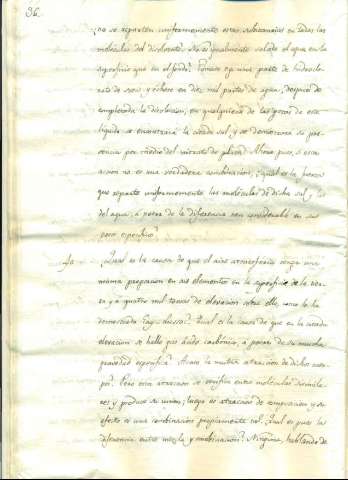 96.
¿no se reparten uniformemente estas substancias en todas las
moleculas del disolvente? ¿No es igualmente salada el agua en la
superficie que en el fondo? Tomese una parte de
de sosa y échese en diez mil partes de agua; despues de
completada la disolucion, en qualquiera de las gotas de este
liquido se encontrará la citada sal, y se demostrara su pre-
sencia por medio del nitrato de plata. Ahora pues, si esta
union no es una verdadera combinacion, ¿qual es la fuerza
que reparte uniformemente las moleculas de dicha sal,
del agua, á pesar de la diferencia tan considerable en sus
pesos especificos?
¿Qual es la causa de que el aire atmosferico tenga una
misma proporcion en sus elementos en la superficie de la tier-
ra y á quatro mil toesas de elevacion sobre ella, como lo ha
demostrado Gay-Lussac? ¿Qual es la causa de que en la citada
elevacion se halle gas ácido carbónico, á pesar de su mucha
gravedad especifica? Acaso la mutua atraccion de dichos cuer-
pos? Pero esta atraccion se verifica entre moleculas disimila-
res y produce su union; luego es atraccion de composicion y su
efecto es una combinacion propiamente tal. ¿Qual es pues la
diferencia entre mezcla y combinacion? Ninguna, hablando de